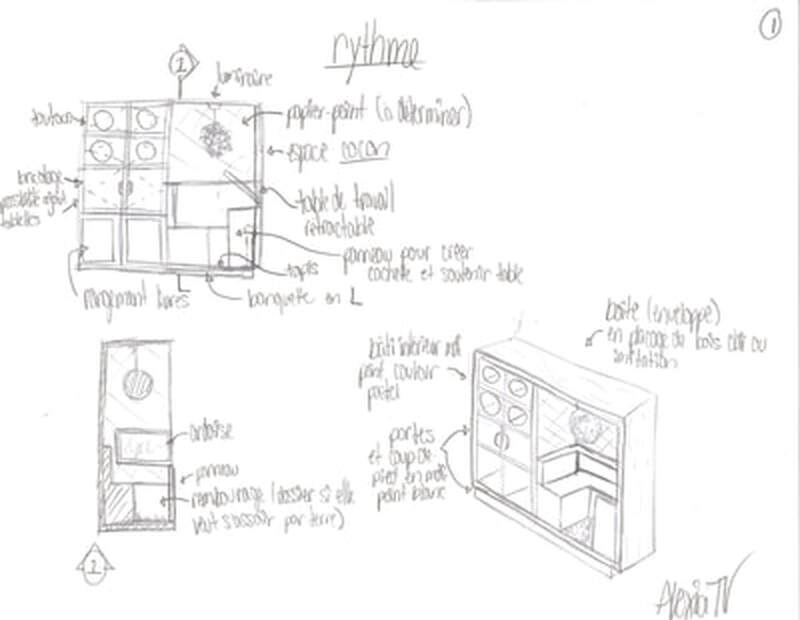 1
rythme
1
luminaire
toutous
papier-peint (à déterminer)
espace cocon
bricolage
possible ajout
tablettes
table de travail
rétractable
panneau pour créer
cachette et soutenir table
tapis
rangement livres
banquette en L
boîte (enveloppe)
en placage de bois clair ou
imitation
bâti intérieur mdf
peint couleur
pastel
portes
et coup de
pied en mdf
peint blanc
ardoise
panneau
rembourrage (dossier si elle
veut s'assoir par terre)
2
Alexia TV